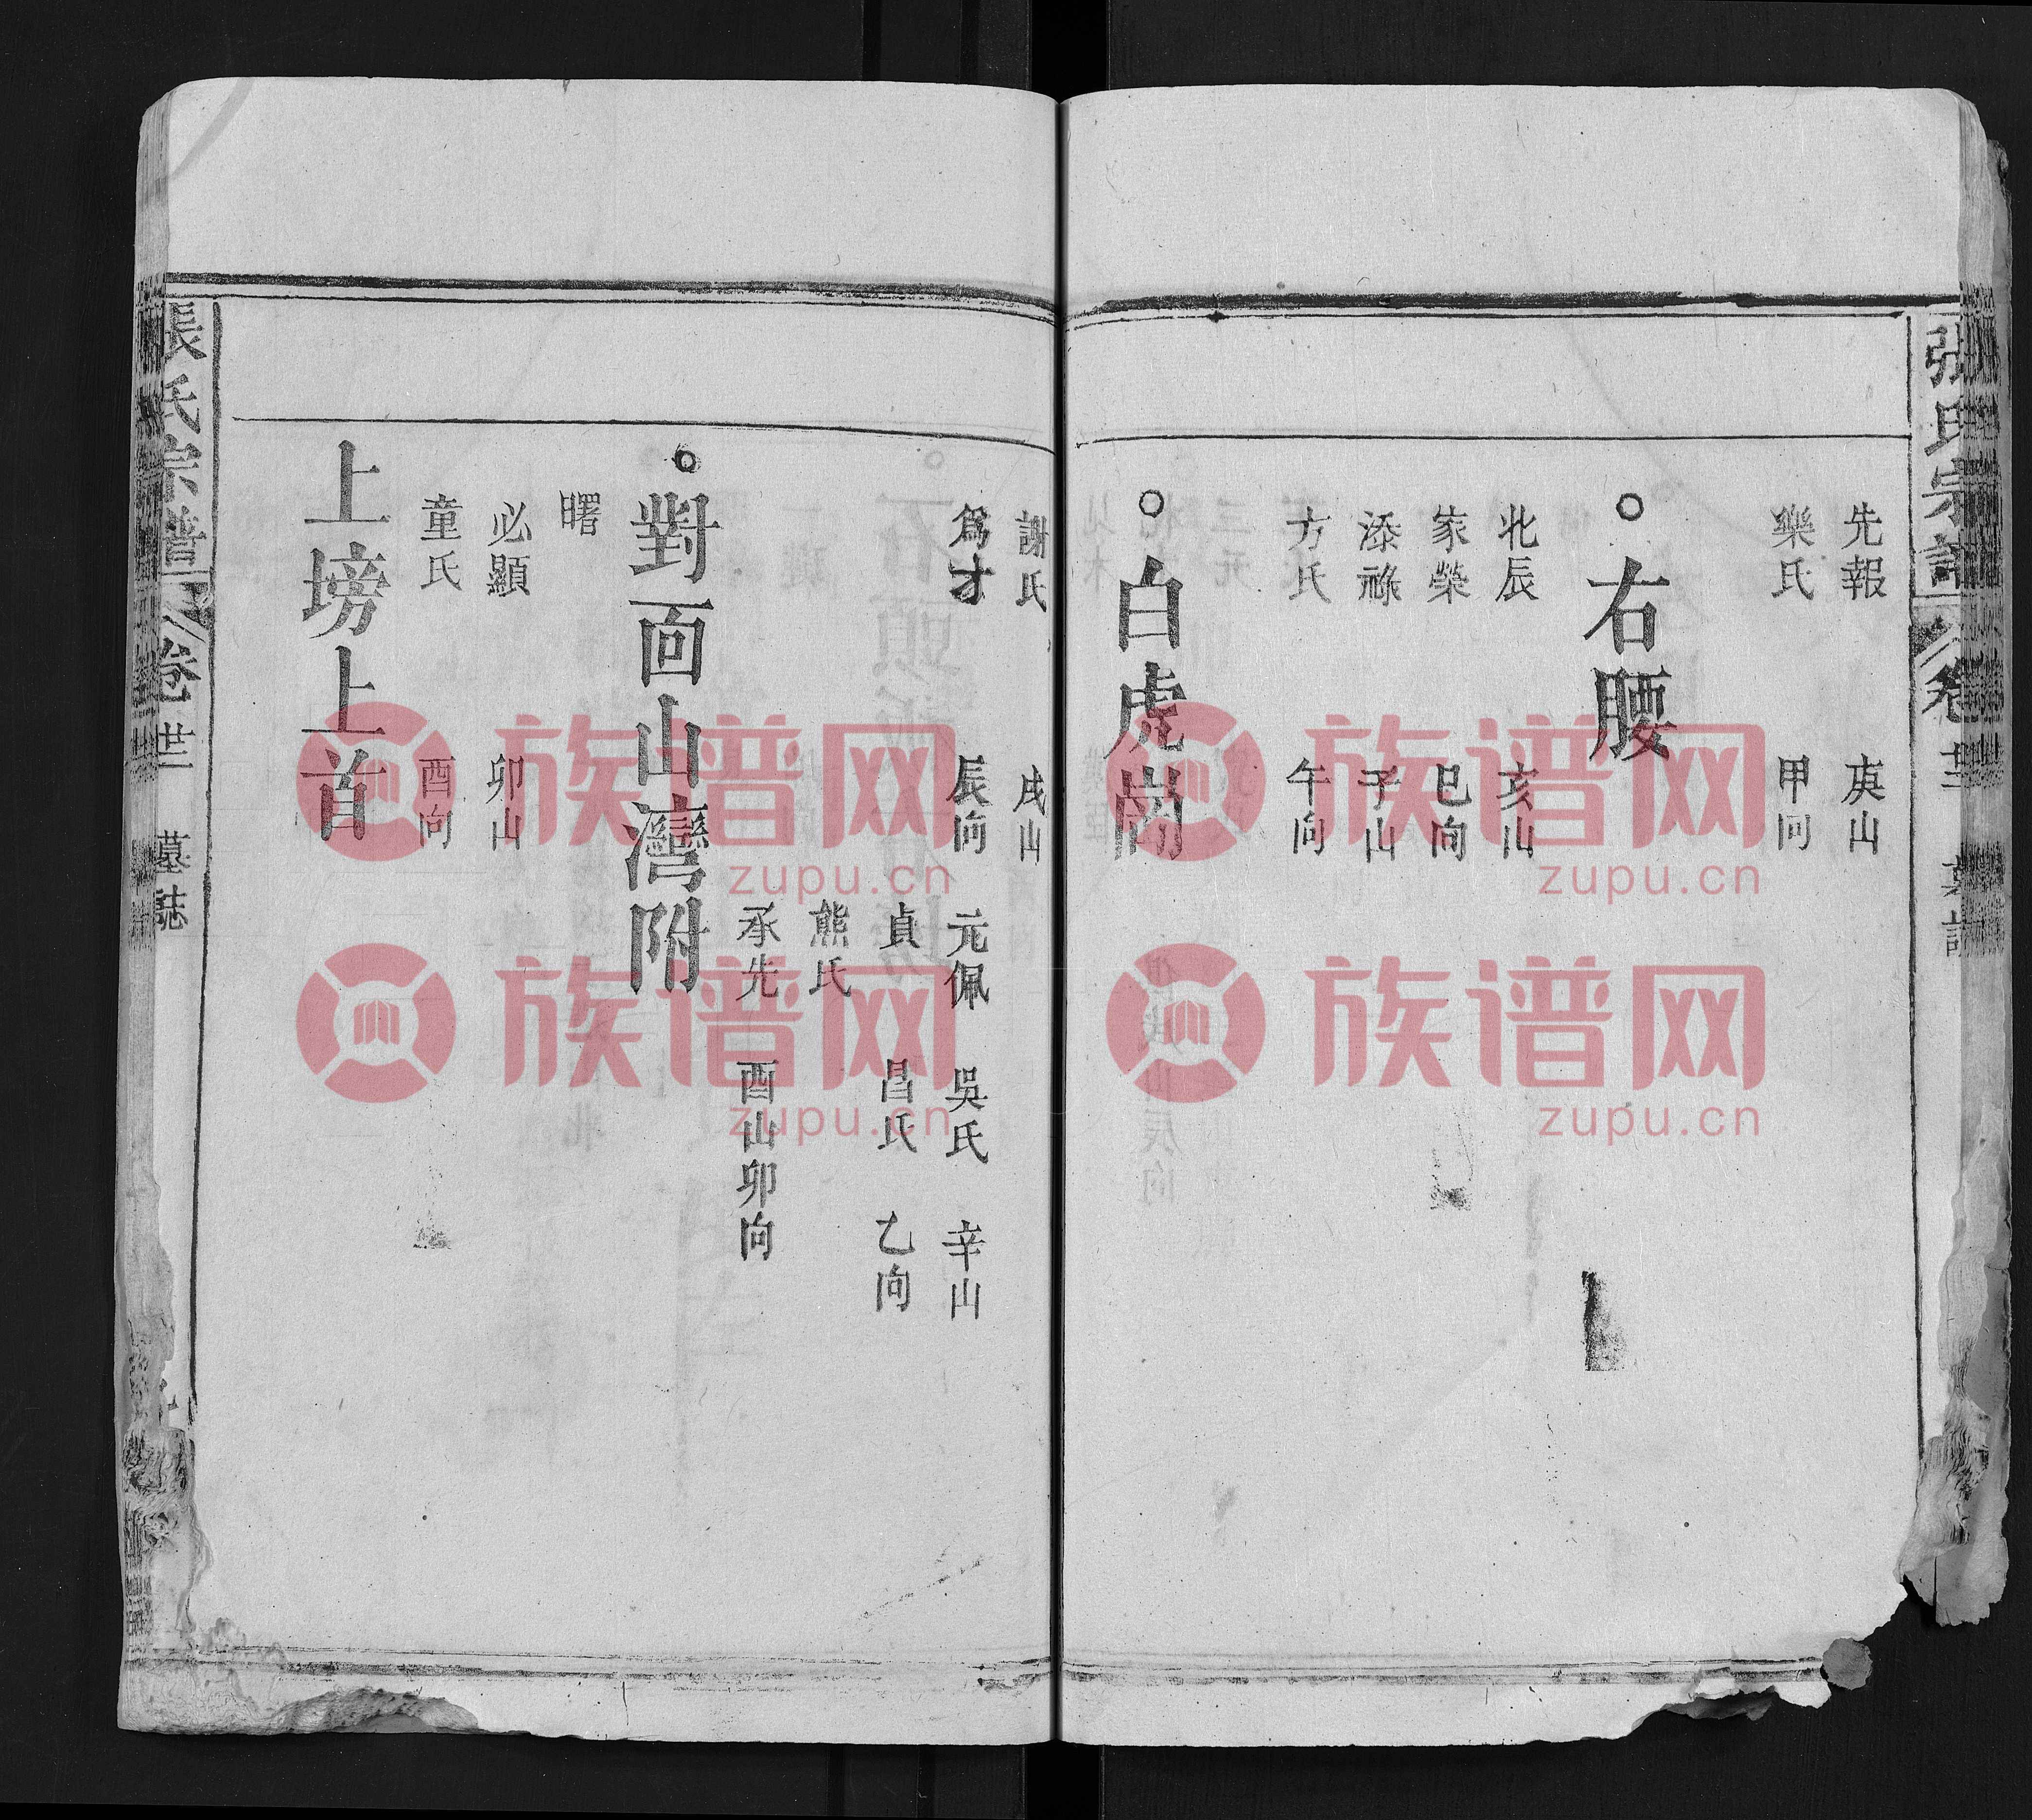 張氏宗譜 卷廿二 墓誌
先報 庚山
樂氏 甲向
○右腰
北辰 亥山
家榮 巳向
添祿 子山
方氏 午向
○白虎崗
謝氏 戌山
爲才 辰向 元佩 吳氏 辛山
貞 昌氏 乙向
熊氏
承先 酉山卯向
○對面山灣附
曙
必顯 卯山
童氏 酉向
上塝上首
張氏宗譜 卷廿二 墓誌
族谱网
zupu.cn
族谱网
zupu.cn
族谱网
zupu.cn
族谱网
zupu.cn